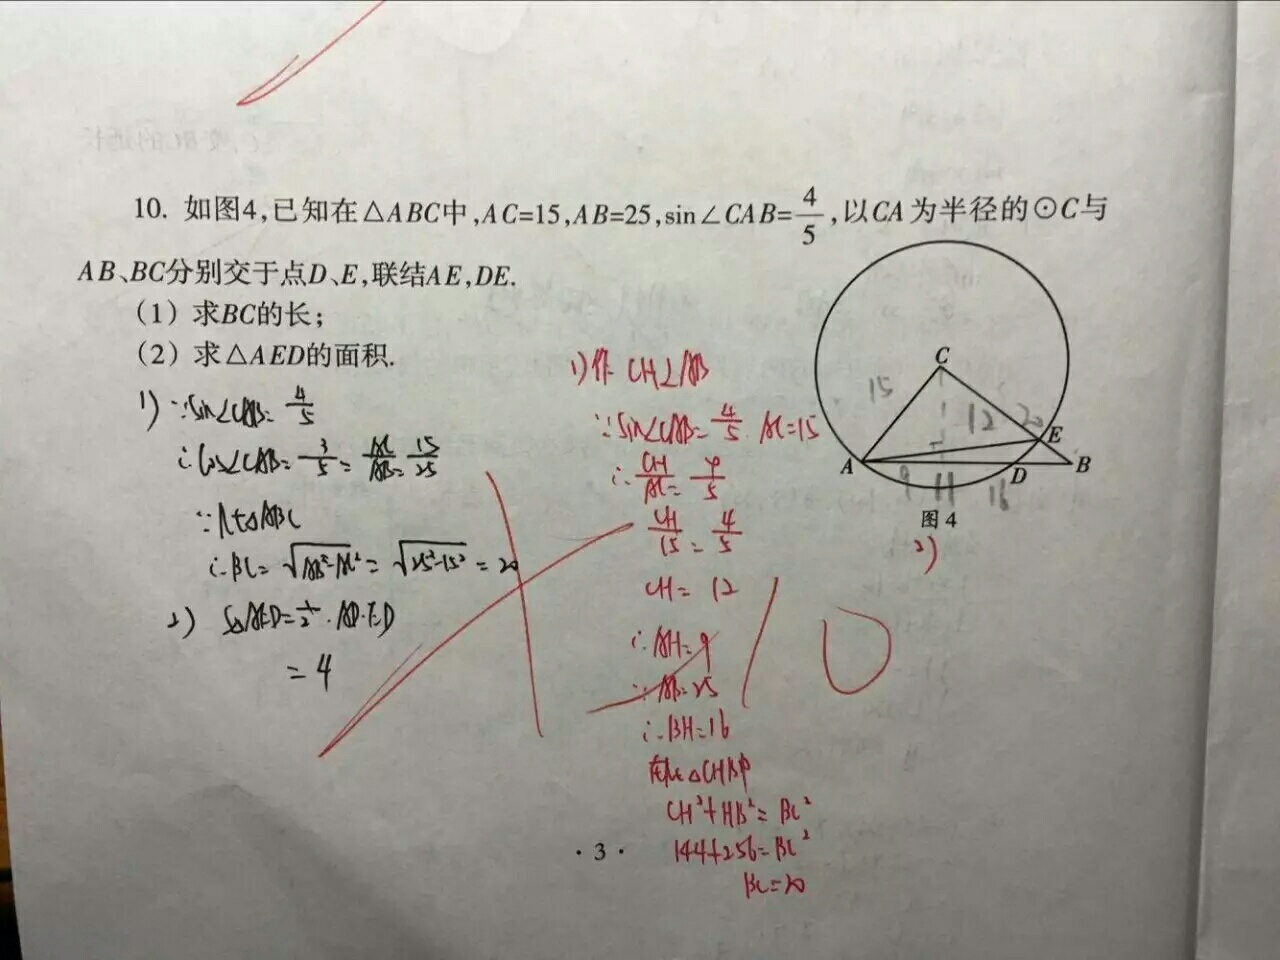 10. 如图4,已知在△ABC中,AC=15,AB=25,sin∠CAB=4/5,以CA为半径的⊙C与
AB、BC分别交于点D、E,联结AE,DE.
(1) 求BC的长;
(2) 求△AED的面积.
1) ∵sin∠CAB=4/5
∴cos∠CAB=3/5=AC/AB=15/25
∵Rt△ABC
∴BC=√(AB²-AC²)=√(25²-15²)=20
2) S△AED=1/2·AD·ED
=4
1)作 CH⊥AB
∵sin∠CAB=4/5 AC=15
∴CH/AC=4/5
CH/15=4/5
CH=12
∴AH=9
∵AB=25
∴BH=16
在Rt△CHB中
CH²+HB²=BC²
144+256=BC²
BC=20
C
15
12 20
E
A
D
B
9 11 16
图4
2)
10
·3·